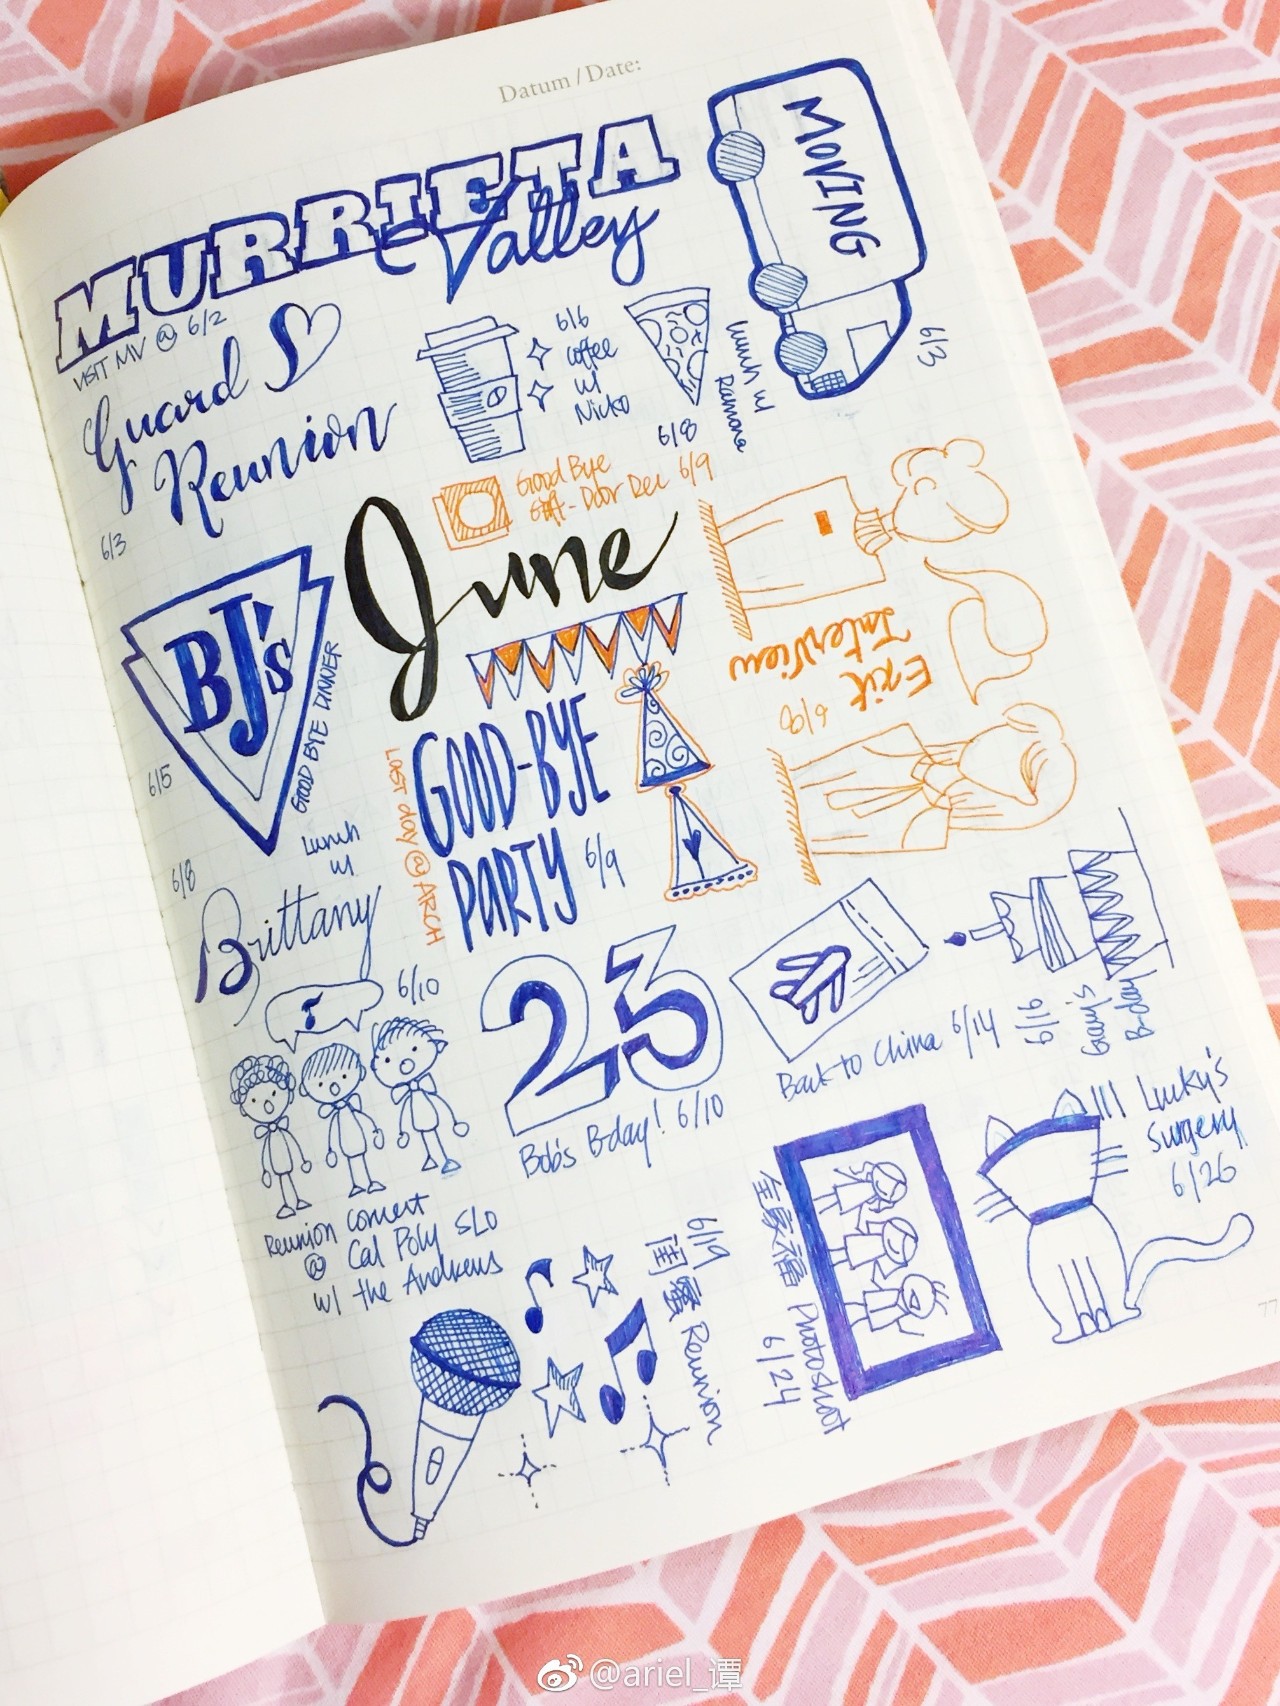 Datum / Date:
MURRIETA
Valley
VISIT MV @ 6/2
MOVING
6/3
Guard
Reunion
6/3
6/6
coffee
w/
Nicko
Lunch w/
Ramona
6/8
GOOD Bye
Gift - Door Dec 6/9
June
BJ's
GOOD BYE DINNER
6/5
Exit
Interview
6/8
GOOD-BYE
PARTY
6/9
LAST day @ ARCH
6/8
Lunch
w/
Brittany
6/10
Reunion Concert
@ Cal Poly SLO
w/ the Andrews
23
Bob's B-day! 6/10
Back to China 6/14
6/16
Gary's
B-day
Lucky's
Surgery
6/26
全家福 Photoshoot
6/24
6/19
闺蜜 Reunion
77
@ariel_谭